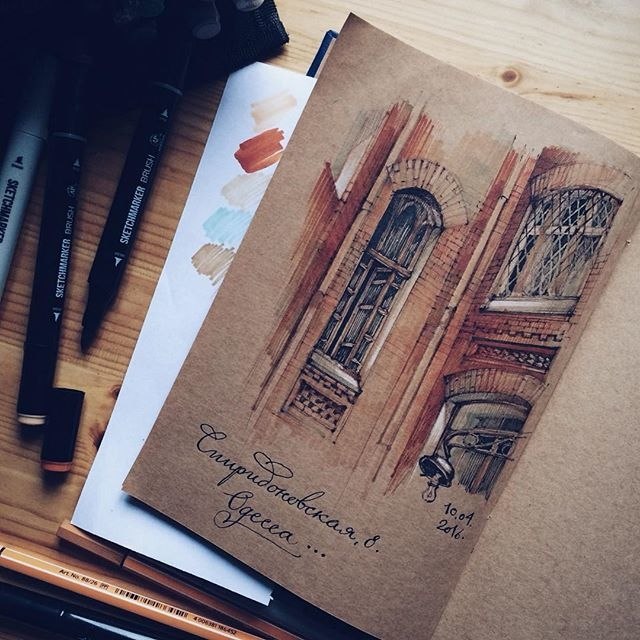 SKETCHMARKER
SKETCHMARKER BRUSH
SKETCHMARKER BRUSH
Спиридоновская, 8.
Одесса ...
10.01.
2016.
Art.No. 88/26
4 006381 186452